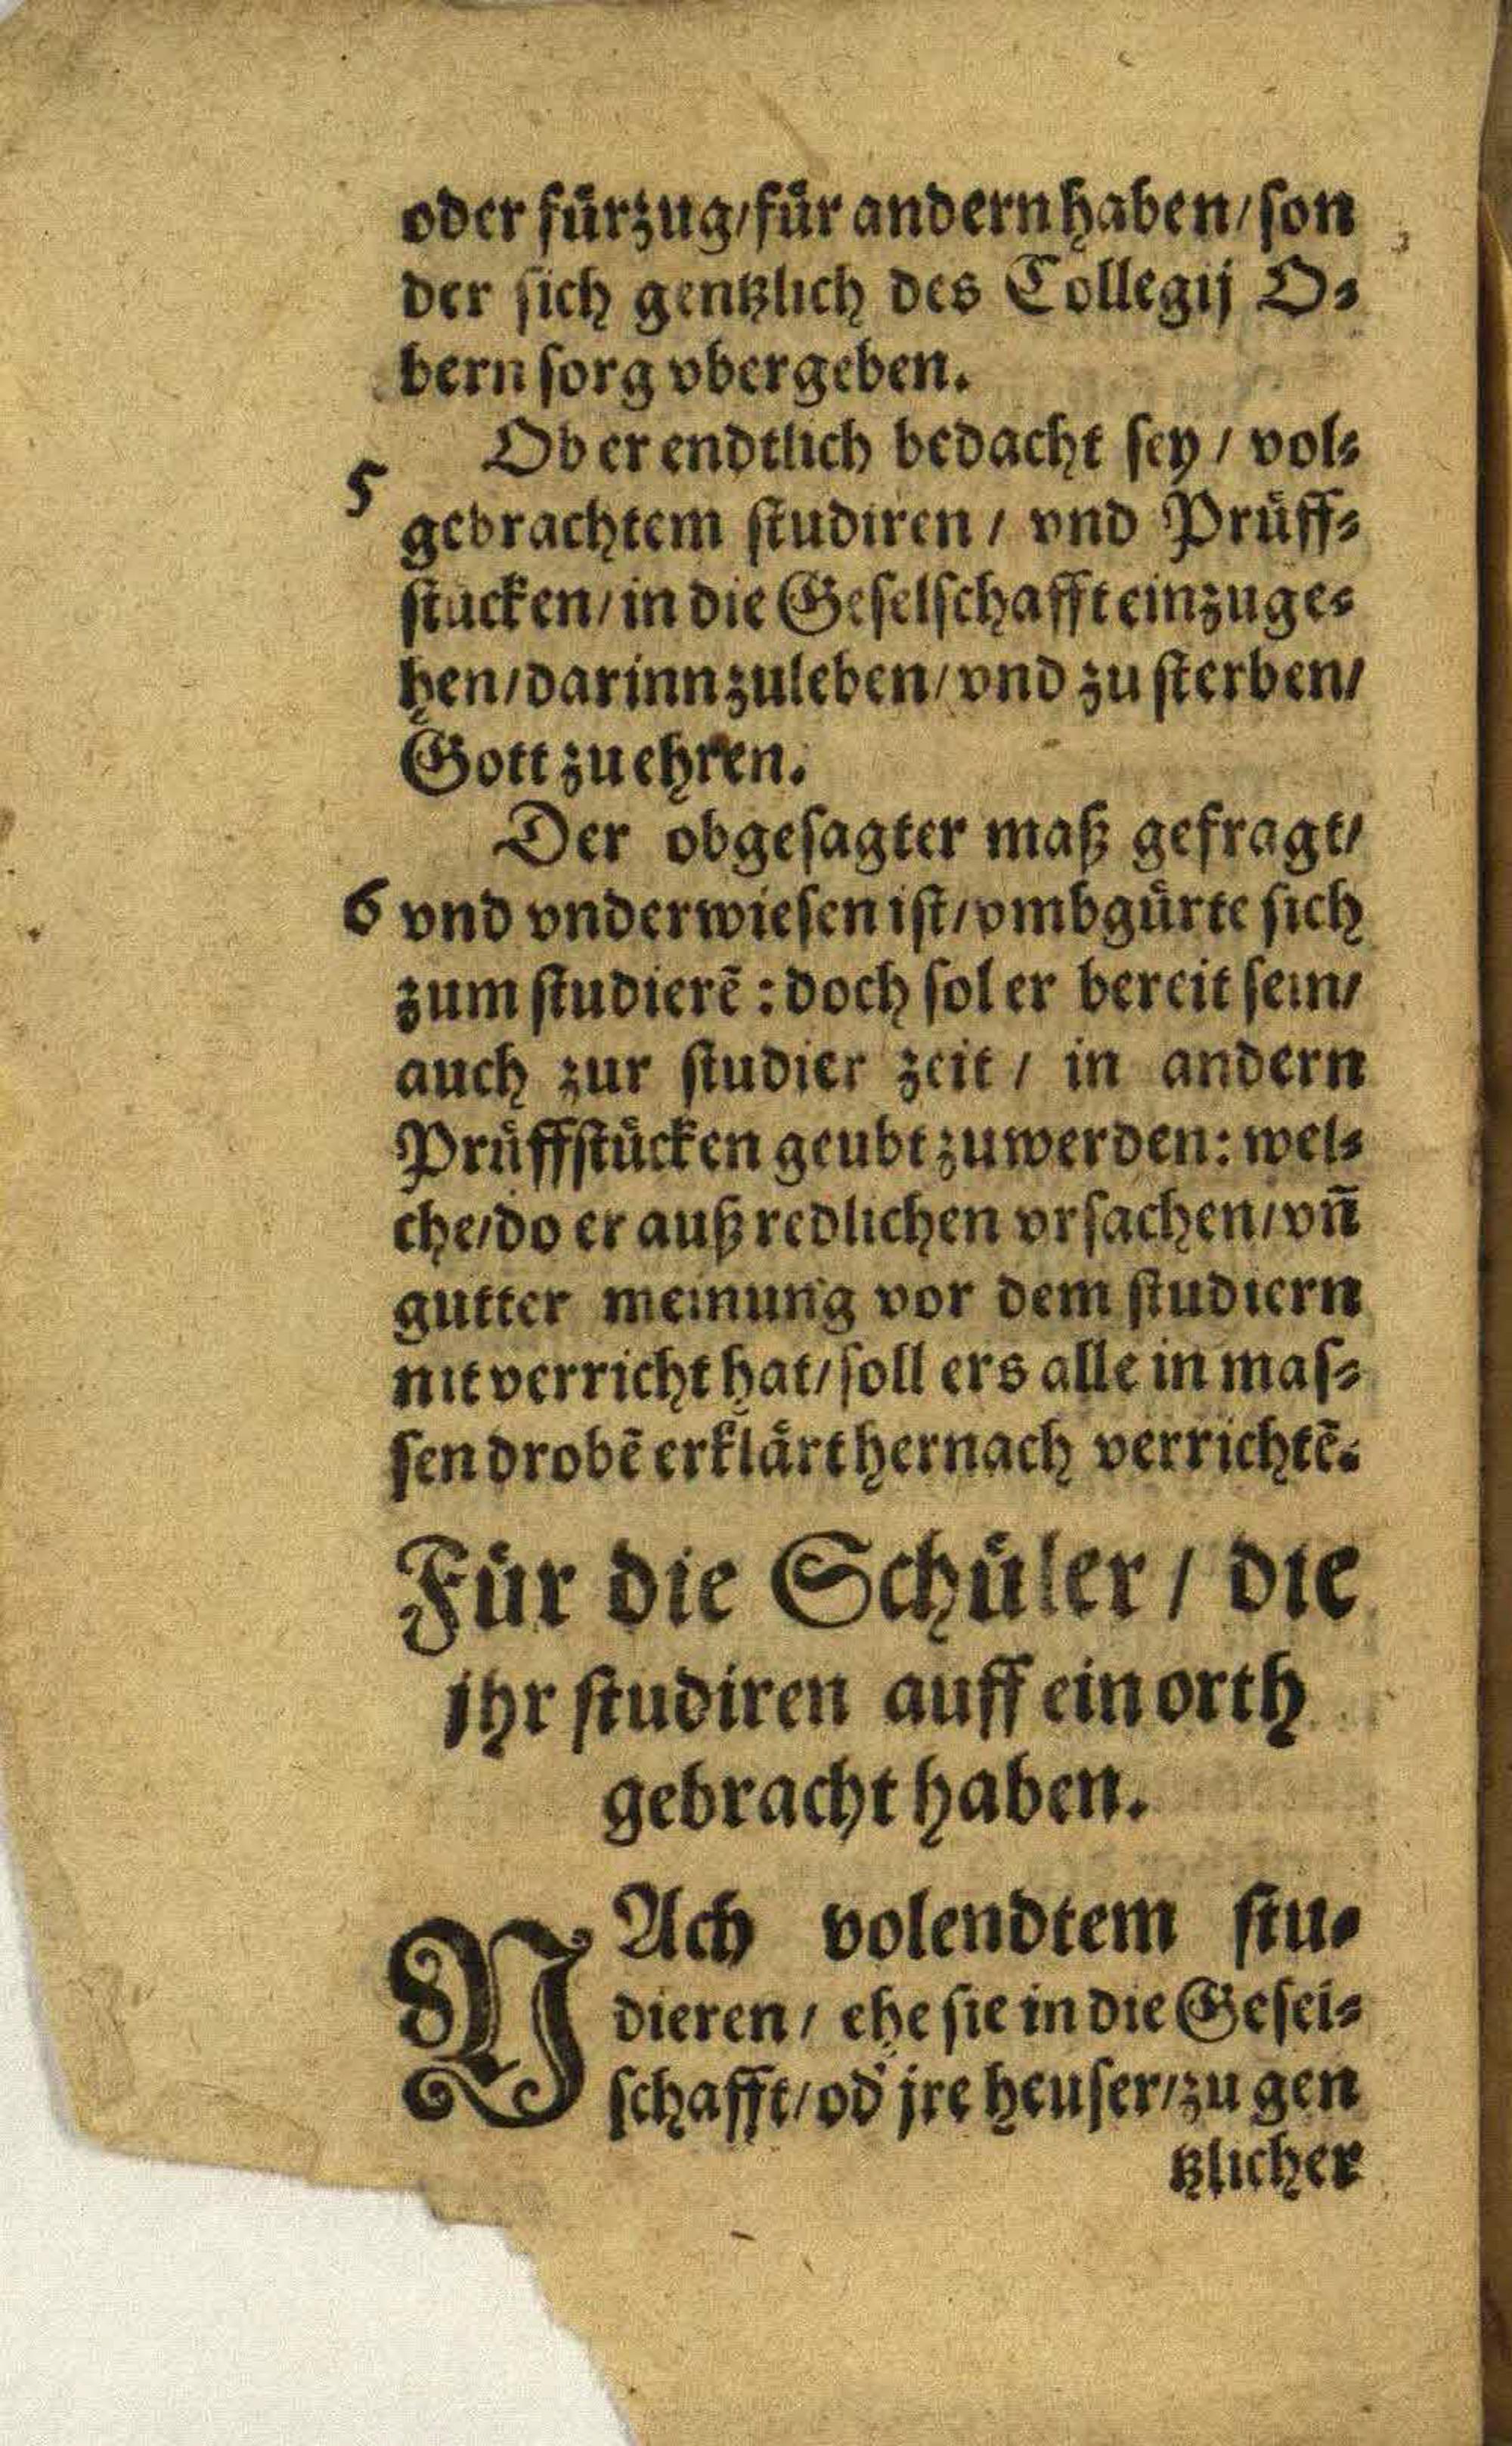 oder fürzug/für andern haben/son
der sich gentzlich des Collegij O-
bern sorg vbergeben.
Ob er endtlich bedacht sey/ vol-
5
gebrachtem studiren/ vnd Prüff-
stücken/in die Geselschafft einzuge-
hen/darinn zuleben/vnd zu sterben/
Gott zu ehren.
Der obgesagter maß gefragt/
6 vnd vnderwiesen ist/vmbgürte sich
zum studierē: doch sol er bereit sein/
auch zur studier zeit/ in andern
Prüffstücken geubt zuwerden: wel-
che/do er auß redlichen vrsachen/vn̄
gutter meinung vor dem studiern
nit verricht hat/soll ers alle in mas-
sen drobē erklärt hernach verrichtē.
Für die Schüler/ die
jhr studiren auff ein orth
gebracht haben.
NAch volendtem stu-
dieren/ ehe sie in die Gesel-
schafft/od' jre heuser/zu gen
tzlicher